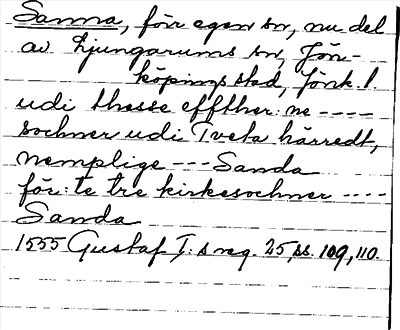 Sanna, förr egen sn, nu del
av Ljungarums sn, Jön-
köpings stad, Jönk. l.
udi thesse effther: ne ----
sochner udi Tveta härredt,
nemplige --- Sanda
för: te tre kirkesochner ----
Sanda
1555 Gustaf I: s reg. 25, ss. 109, 110.